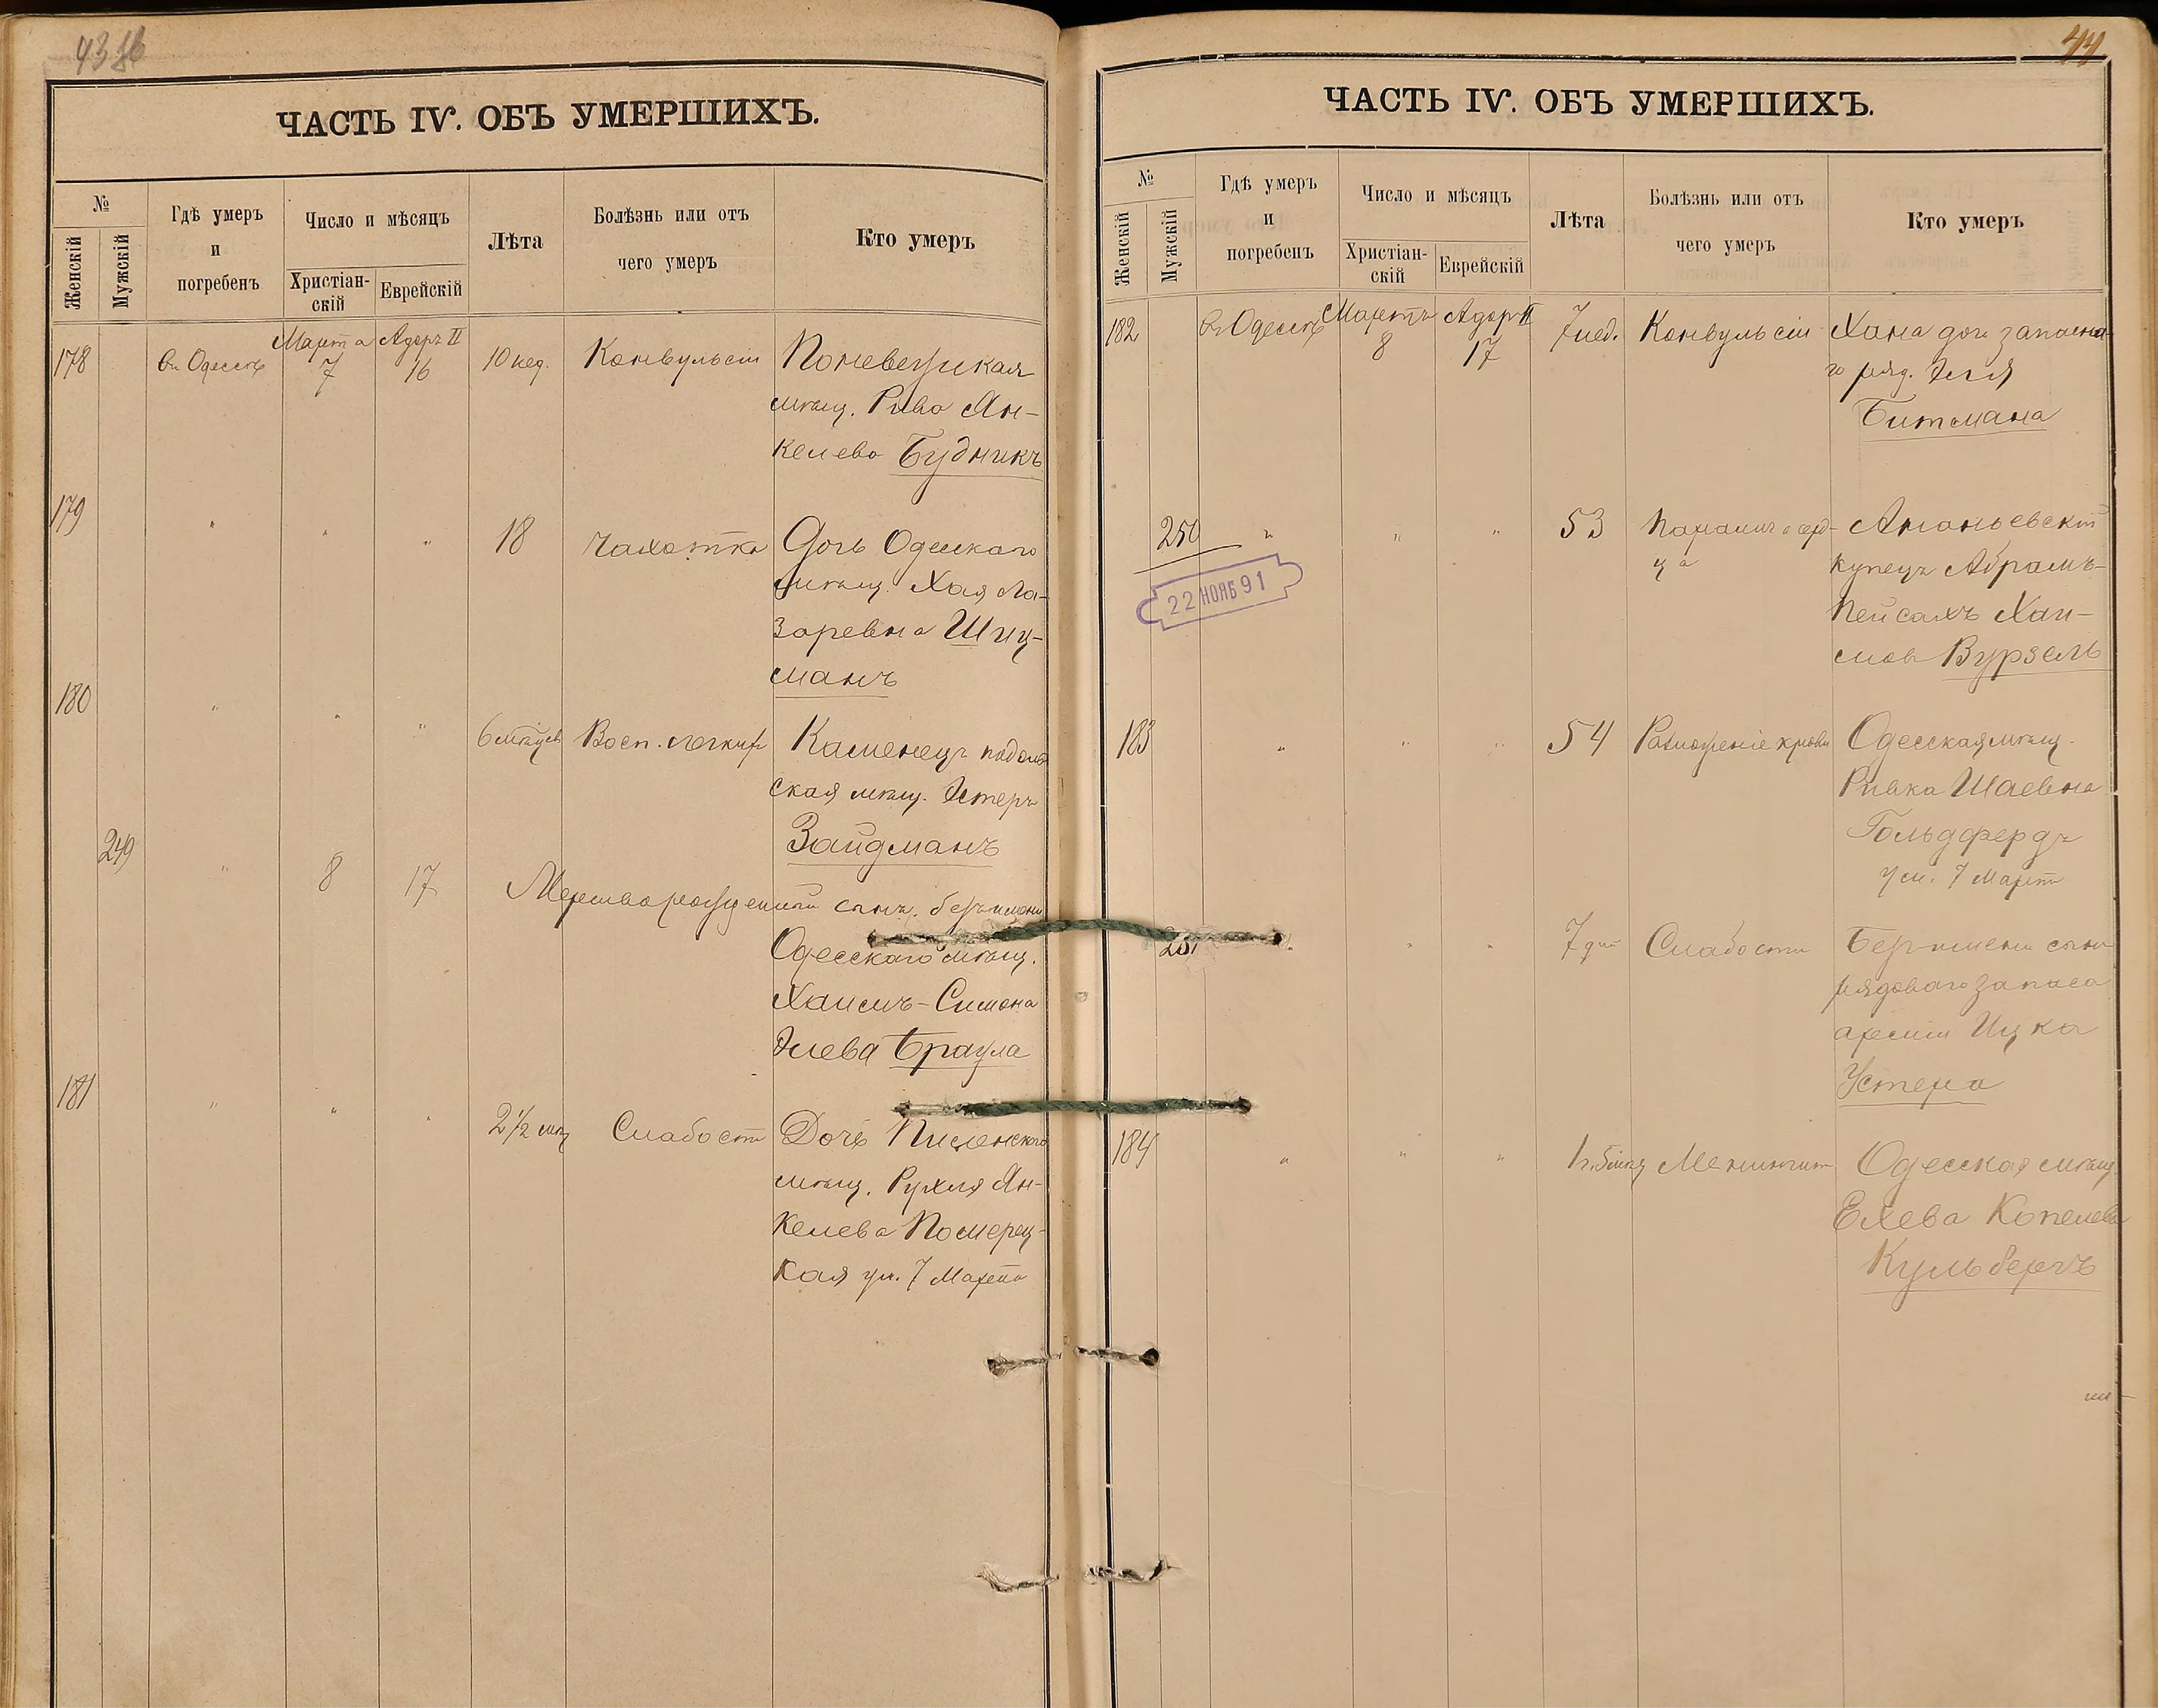 43 об
ЧАСТЬ IV. ОБЪ УМЕРШИХЪ.
№
Женскій
Мужскій
Гдѣ умеръ
и
погребенъ
Число и мѣсяцъ
Христіан-
скій
Еврейскій
Лѣта
Болѣзнь или отъ
чего умеръ
Кто умеръ
178
въ Одессѣ
Марта
7
Адаръ II
16
10 нед.
Конвульсіи
Поневежская
мѣщ. Рива Ян-
келева Будникъ
179
" " "
18
Чахотка
Дочь Одесскаго
мѣщ. Хая Ла-
заревна Шпиц-
манъ
180
" " "
6 мѣсяцев
Восп. легкихъ
Каменецъ подоль
ская мѣщ. Эстеръ
Зайдманъ
249
"
8
17
Мертворожденный сынъ безъ имени
Одесскаго мѣщ.
Хаимъ-Симона
Элева Браула
181
" " "
2 1/2 мѣс
Слабости
Дочь
мѣщ. Рухля Ян-
келева Померец-
кая ум. 7 Марта
44
ЧАСТЬ IV. ОБЪ УМЕРШИХЪ.
№
Женскій
Мужскій
Гдѣ умеръ
и
погребенъ
Число и мѣсяцъ
Христіан-
скій
Еврейскій
Лѣта
Болѣзнь или отъ
чего умеръ
Кто умеръ
182
въ Одессѣ
Мартъ
8
Адаръ II
17
7 нед.
Конвульсіи
Хана доч. запасна-
го ряд. Эля
Битмана
250
" " "
53
Параличъ серд-
ца
Ананьевскій
купецъ Абрамъ-
Пейсахъ Хаи-
мов Вурзель
22 НОЯБ 91
183
" " "
54
Разложеніе крови
Одесская мѣщ.
Ривка Шаевна
Гольдфердъ
ум. 7 Марта
251
" " "
7 дн
Слабости
Безъ имени сынъ
рядоваго запаса
арміи Ицка
Устера
184
" " "
1 г. 5 мѣс
Менингит
Одесская мѣщ
Елева Копелева
Кульбергъ